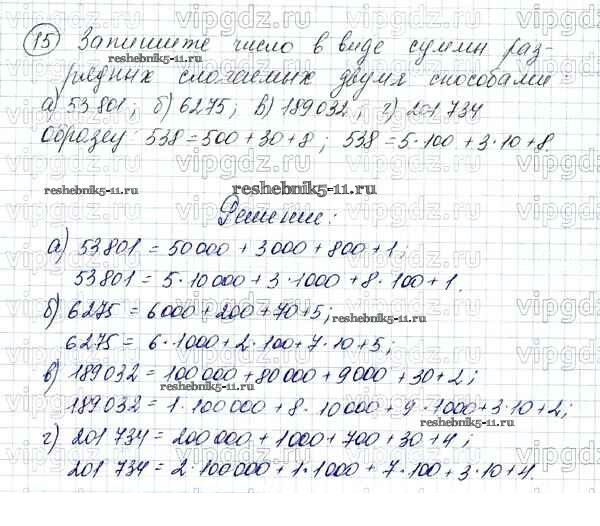 15 Запишите число в виде суммы раз-
рядных слагаемых двумя способами
а) 53 801; б) 6275; в) 189 032; г) 201 734
образец: 538 = 500 + 30 + 8; 538 = 5·100 + 3·10 + 8.
Решение:
а) 53801 = 50000 + 3000 + 800 + 1;
53801 = 5·10000 + 3·1000 + 8·100 + 1.
б) 6275 = 6000 + 200 + 70 + 5;
6275 = 6·1000 + 2·100 + 7·10 + 5;
в) 189032 = 100 000 + 80000 + 9000 + 30 + 2;
189032 = 1·100 000 + 8·10000 + 9·1000 + 3·10 + 2;
г) 201 734 = 200 000 + 1000 + 700 + 30 + 4;
201 734 = 2·100000 + 1·1000 + 7·100 + 3·10 + 4.
reshebnik5-11.ru
reshebnik5-11.ru
reshebnik5-11.ru
reshebnik5-11.ru
reshebnik5-11.ru
reshebnik5-11.ru
vipgdz.ru